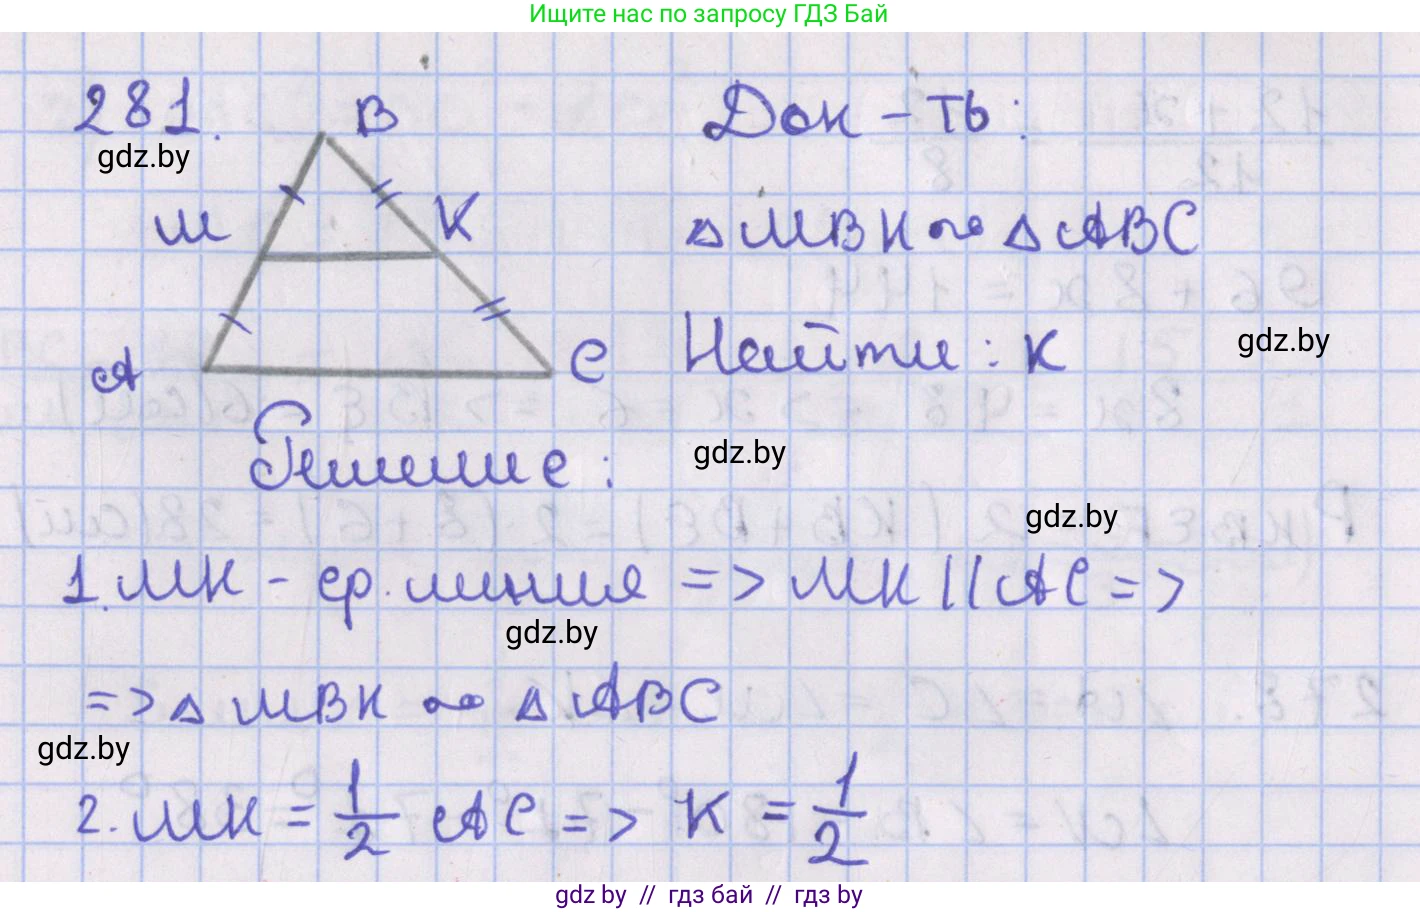 Ищите нас по запросу ГДЗ Бай
281.
gdz.by
B
M
K
A
C
Док-ть:
△MBK ∾ △ABC
Найти: K
gdz.by
Решение:
gdz.by
gdz.by
1. MK - ср. линия => MK || AC =>
gdz.by
=> △MBK ∾ △ABC
gdz.by
2. MK = 1/2 AC => K = 1/2
gdz.by // гдз бай // гдз by